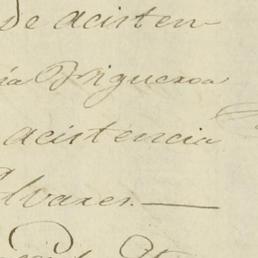 de acisten
ía Brigueroa
acistencia
lvares.